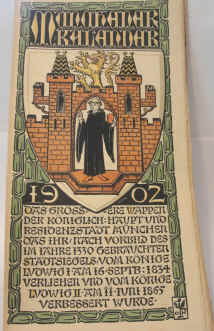 Münchener
Kalender
1902
DAS GRÖSSERE WAPPEN
DER KÖNIGLICH: HAUPT UND
RESIDENZSTADT MÜNCHEN
DAS IHR NACH VORBILD DES
IM JAHRE 1330 GEBRAUCHTEN
STADTSIEGELS VOM KÖNIGE
LUDWIG I AM 16 SEPTB: 1834
VERLIEHN UND VOM KÖNIGE
LUDWIG II AM 11 JUNI 1865
VERBESSERT WURDE